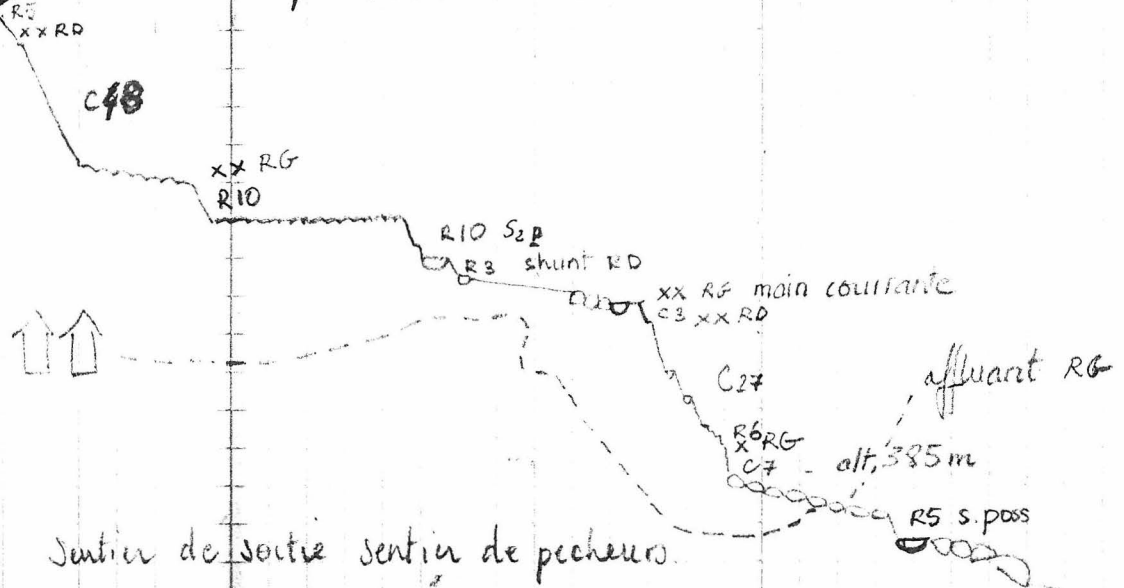 R5
xx RD
C48
xx RG
R10
R10 S2P
R3 shunt RD
xx RG main courante
C3 xx RD
C27
affluant RG
R6
x RG
C7
alt, 385 m
R5 s.poss
Sentier de sortie sentier de pecheurs